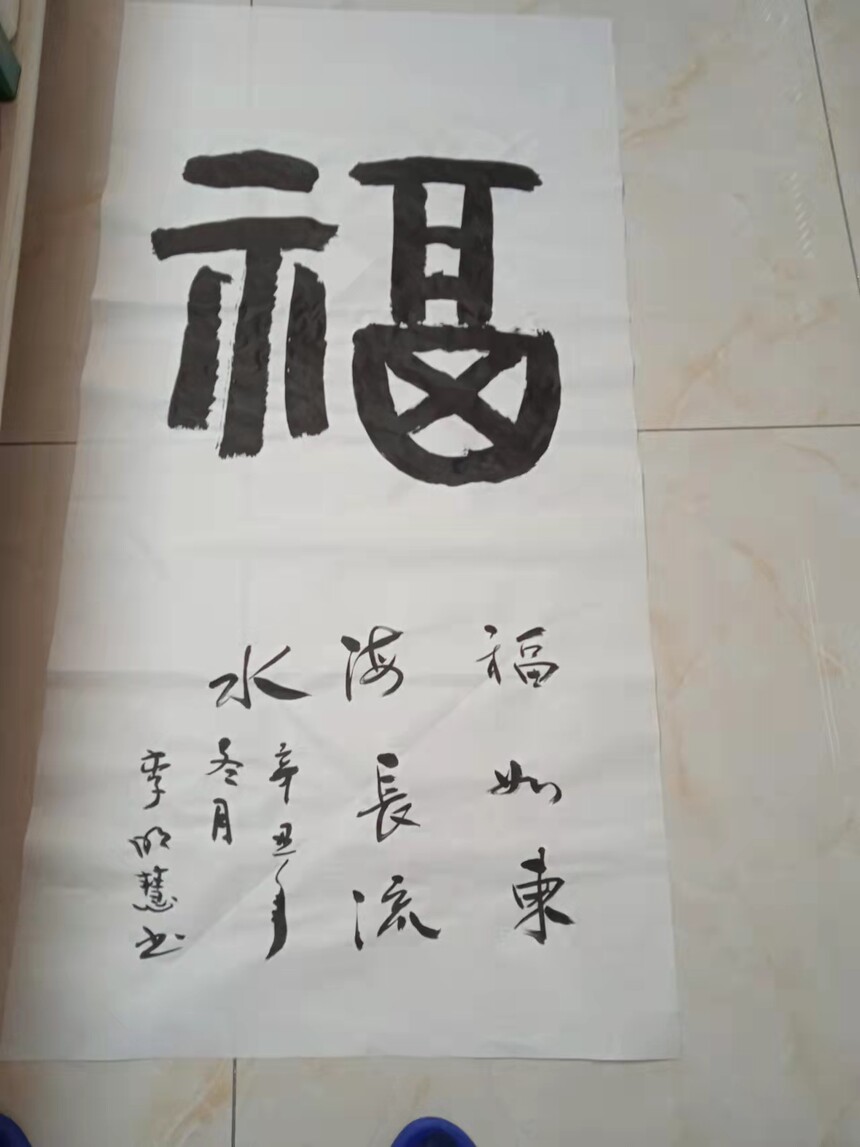 福
福如東
海長流
水
辛丑年
冬月
李明慧书